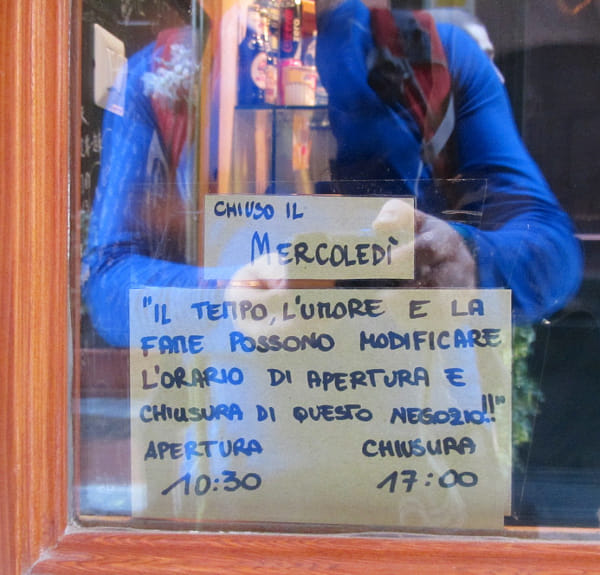 CHIUSO IL
MERCOLEDÌ
"IL TEMPO, L'UMORE E LA
FAME POSSONO MODIFICARE
L'ORARIO DI APERTURA E
CHIUSURA DI QUESTO NEGOZIO!!"
APERTURA CHIUSURA
10:30 17:00